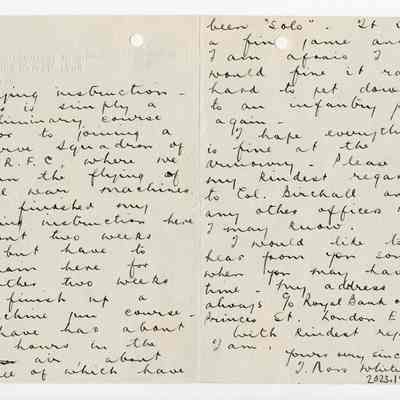 ying instruction -
s is simply a
liminary course
or to joining a
erve Squadron of
R.F.C. where we
n the flying of
l war machines.
finished my
ing instruction here
nt two weeks
but have to
ain here for
ther two weeks
finish up a
chine gun course -
have has about
hours in the
air, about
ee of which have
been "Solo". It
a fine game and
I am afraid I
would find it ra
hard to get down
to an infantry
again -
I hope everyth
is fine at the
Armoury - Please
my kindest regar
to Col. Birchall an
any other officers
I may know.
I would like t
hear from you som
when you may hav
time - My address
always c/o Royal Bank o
Princes St. London E
With kindest reg
I am.
Yours very since
J. Ross White
2023.1